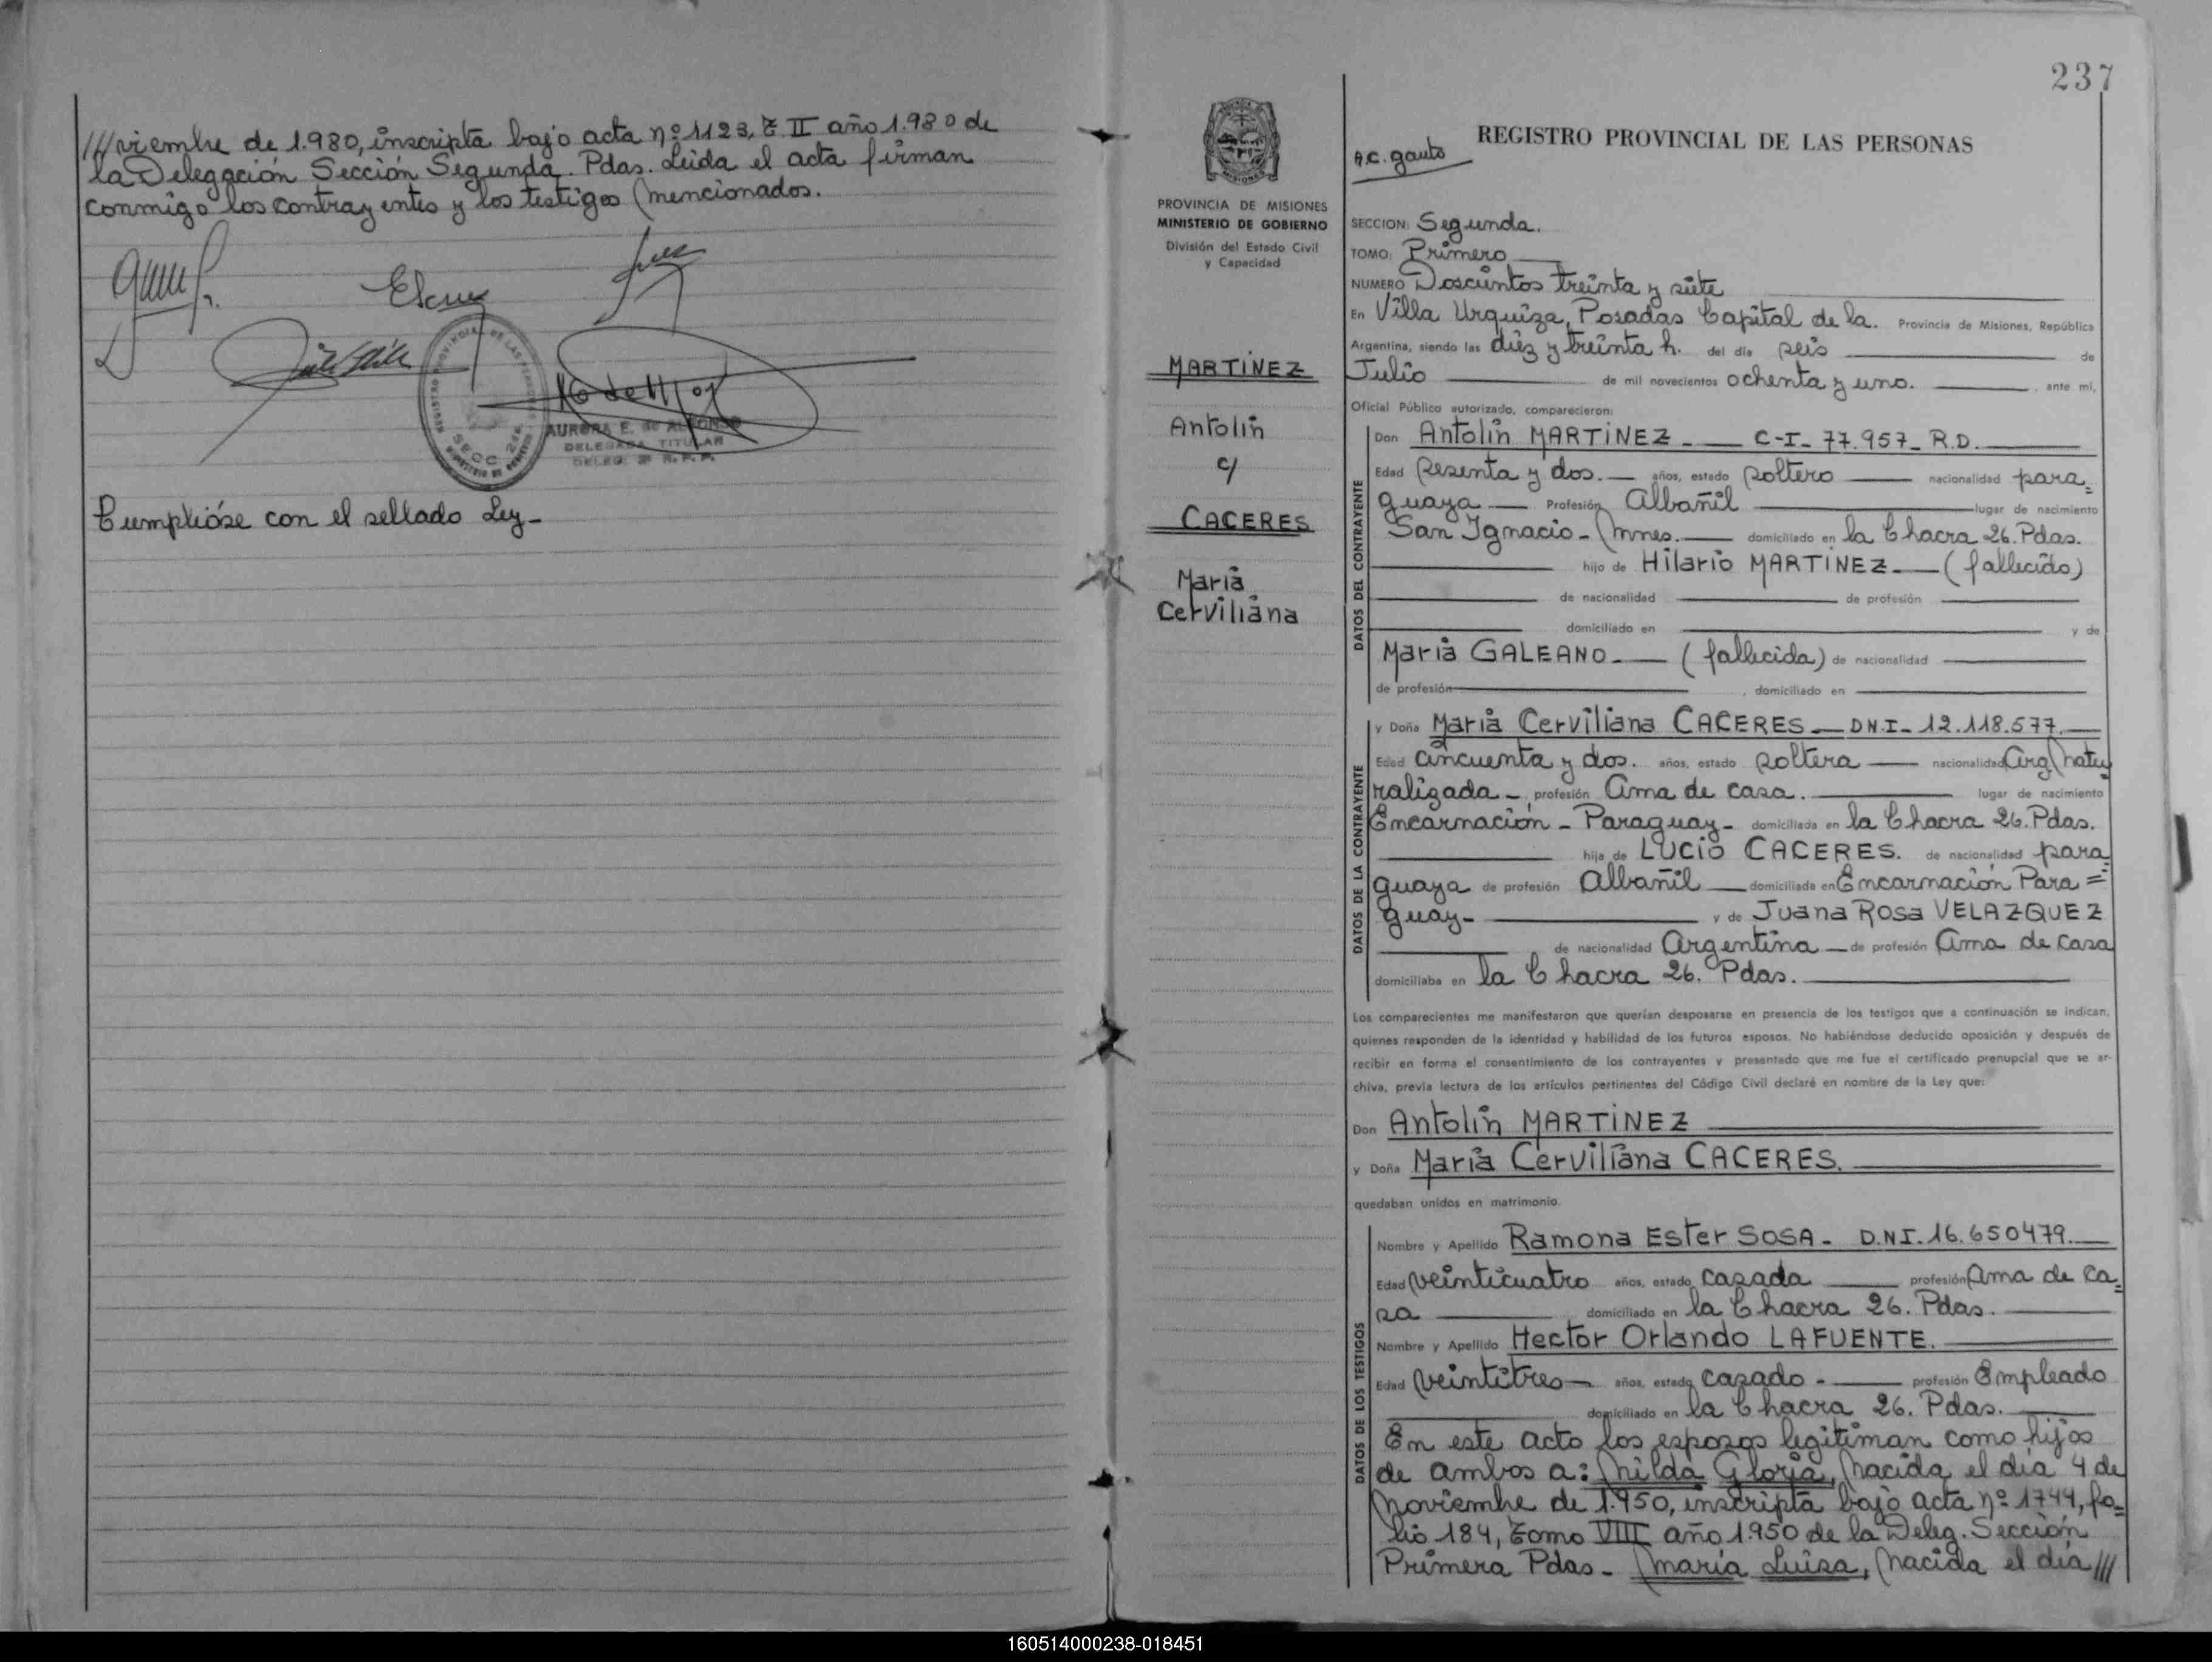 ///viembre de 1.980, inscripta bajo acta nº 1123, T. II año 1.980 de
la Delegación Sección Segunda. Pdas. Leida el acta firman
conmigo los contrayentes y los testigos mencionados.
AURORA E. de ALFONSO
DELEGADA TITULAR
DELEG. 2ª R.P.P.
Cumplióse con el sellado Ley-
237
PROVINCIA DE MISIONES
MINISTERIO DE GOBIERNO
División del Estado Civil
y Capacidad
MARTÍNEZ
Antolín
c/
CACERES
María
Cerviliana
REGISTRO PROVINCIAL DE LAS PERSONAS
A.C. gauto
SECCION: Segunda.
TOMO: Primero
NUMERO Doscientos treinta y siete
En Villa Urquiza, Posadas Capital de la. Provincia de Misiones, República
Argentina, siendo las diez y treinta h. del día seis de
Julio de mil novecientos ochenta y uno. , ante mi,
Oficial Público autorizado, comparecieron:
DATOS DEL CONTRAYENTE
Don Antolín MARTÍNEZ - C-I- 77.957- R.D.
Edad sesenta y dos. años, estado soltero nacionalidad para=
guaya Profesión Albañil lugar de nacimiento
San Ignacio - Mnes. domiciliado en la Chacra 26. Pdas.
hijo de Hilario MARTÍNEZ (fallecido)
de nacionalidad de profesión
domiciliado en y de
María GALEANO. (fallecida) de nacionalidad
de profesión , domiciliado en
DATOS DE LA CONTRAYENTE
y Doña María Cerviliana CACERES - DNI- 12.118.577.
Edad cincuenta y dos. años, estado soltera nacionalidad Arg/natu
ralizada - , profesión Ama de casa. lugar de nacimiento
Encarnación - Paraguay- domiciliada en la Chacra 26. Pdas.
hija de LUCIO CACERES. de nacionalidad para=
guaya de profesión Albañil domiciliada en Encarnación Para=
guay- y de Juana Rosa VELAZQUEZ
de nacionalidad Argentina de profesión Ama de casa
domiciliaba en la Chacra 26. Pdas.
Los comparecientes me manifestaron que querían desposarse en presencia de los testigos que a continuación se indican,
quienes responden de la identidad y habilidad de los futuros esposos. No habiéndose deducido oposición y después de
recibir en forma el consentimiento de los contrayentes y presentado que me fue el certificado prenupcial que se ar-
chiva, previa lectura de los artículos pertinentes del Código Civil declaré en nombre de la Ley que:
Don Antolín MARTÍNEZ
y Doña María Cerviliana CACERES.
quedaban unidos en matrimonio.
DATOS DE LOS TESTIGOS
Nombre y Apellido Ramona Ester SOSA - D.N.I. 16.650479.
Edad veinticuatro años, estado casada profesión Ama de ca=
sa domiciliado en la Chacra 26. Pdas.
Nombre y Apellido Hector Orlando LAFUENTE.
Edad veintitres años, estado casado - profesión Empleado
domiciliado en la Chacra 26. Pdas.
En este acto los esposos legitiman como hijos
de ambos a: Nilda Gloria, nacida el día 4 de
noviembre de 1.950, inscripta bajo acta nº 1744, fo=
lio 184, Tomo VIII año 1.950 de la Deleg. Sección
Primera Pdas - María Luisa, nacida el día ///
160514000238-018451